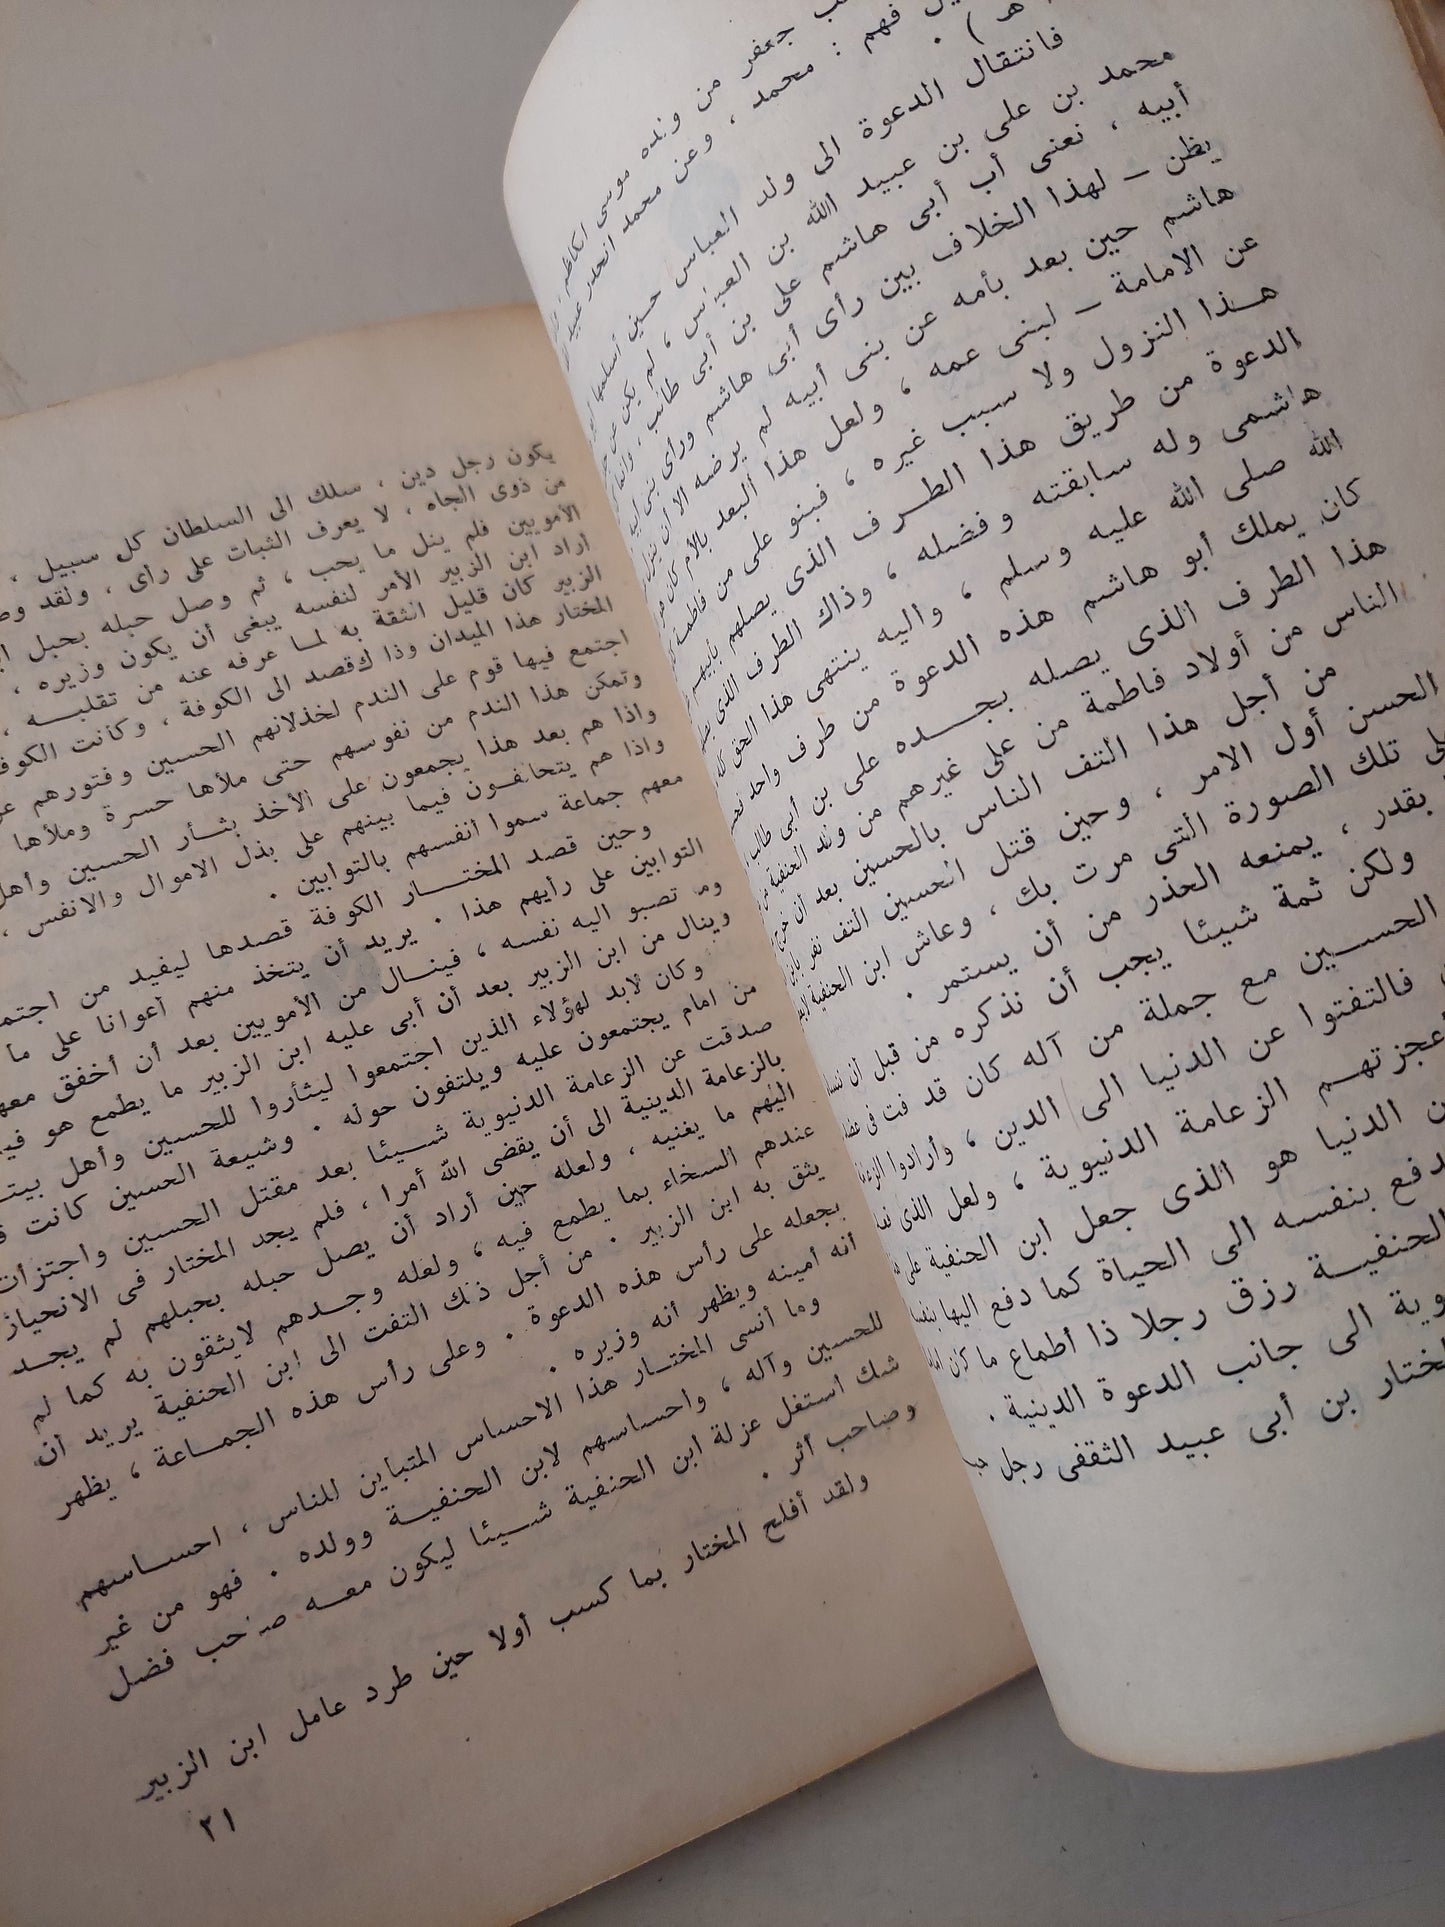 جعفر من ولده موسى الكاظم
فهم : محمد ، وعن محمد انحدر عبيد
هـ ) .
فانتقال الدعوة الى ولد العباس حين أسلمها
محمد بن على بن عبيد الله بن العباس ، لم يكن عن
أبيه ، نعنى أب أبى هاشم على بن أبى طالب ، وانما
يظن – لهذا الخلاف بين رأى أبى هاشم ورأى بنى أبيه
هاشم حين بعد بأمه عن بنى أبيه لم يرضه الا أن ينزل
عن الامامة – لبنى عمه ، ولعل هذا البعد بالأم كان
هـذا النزول ولا سبب غيره ، فبنو على من فاطمة
الدعوة من طريق هذا الطرف الذى يصلهم بأبيهم
هاشمى وله سابقته وفضله ، وذاك الطرف الذى
الله صلى الله عليه وسلم ، واليه ينتهى هذا الحق كله
كان يملك أبو هاشم هذه الدعوة من طرف واحد
هذا الطرف الذى يصله بجـده على بن أبى طالب
الناس من أولاد فاطمة من على غيرهم من ولد الحنفية من
من أجل هذا التف الناس بالحسين بعد أن خرج
الحسن أول الامر ، وحين قتل الحسين التف نفر
تلك الصورة التى مرت بك ، وعاش ابن الحنفية
بقدر ، يمنعه الحذر من أن يستمر .
ولكن ثمة شيئا يجب أن نذكره من قبل أن
الحسـين مع جملة من آله كان قد فت فى
فالتفتوا عن الدنيا الى الدين ، وأرادوا
أعجزتهـم الزعامة الدنيوية ، ولعل الذى
الدنيا هو الذى جعل ابن الحنفية على
دفع بنفسه الى الحياة كما دفع اليها
الحنفيـة رزق رجلا ذا أطماع ما كان
الى جانب الدعوة الدينية .
بن أبى عبيد الثقفى رجل
يكون رجل دين ، سلك الى السلطان كل سبيل ،
من ذوى الجاه ، لا يعرف الثبات على رأى ، ولقد
الأمويين فلم ينل ما يحب ، ثم وصل حبله بحبل
أراد ابن الزبير الأمر لنفسه يبغى أن يكون وزيره ،
الزبير كان قليل الثقة به لما عرفه عنه من تقلبـه ،
المختار هذا الميدان وذا ك قصد الى الكوفة ، وكانت
اجتمع فيها قوم على الندم لخذلانهم الحسين وفتورهم
وتمكن هذا الندم من نفوسهم حتى ملأها حسرة وملأها
واذا هم بعد هذا يجمعون على الأخذ بثـأر الحسين وأهل
واذا هم يتحالفـون فيما بينهم على بذل الاموال والانفس ،
معهم جماعة سموا أنفسهم بالتوابين .
وحين قصد المختـار الكوفة قصدها ليفيد من
التوابين على رأيهم هذا . يريد أن يتخذ منهم أعوانا على ما
وما تصبو اليه نفسه ، فينـال من الأمويين بعد أن أخفق
وينال من ابن الزبير بعد أن أبى عليه ابن الزبير ما يطمع هو
وكان لابد لهؤلاء الذين اجتمعوا ليثأروا للحسين وأهل
من امام يجتمعون عليه ويلتفون حوله . وشيعة الحسين كانت
صدقت عن الزعامة الدنيوية شـيئا بعد مقتل الحسين واجتزأت
بالزعامة الدينية الى أن يقضى الله أمرا ، فلم يجد المختار فى الانحياز
اليهم ما يغنيه ، ولعله حين أراد أن يصل حبله بحبلهم لم يجـد
عندهم السخاء بما يطمع فيه ، ولعله وجـدهم لايثقون به كما لم
يثق به ابن الزبير . من أجل ذلك التفت الى ابن الحنفية يريد أن
يجعله على رأس هذه الدعوة . وعلى رأس هذه الجمـاعة ، يظهر
أنه أمينه ويظهر أنه وزيره .
وما أنسى المختـار هذا الاحساس المتباين للناس ، احسـاسهم
للحسين وآله ، واحساسهم لابن الحنفيـة وولده . فهو من غير
شك استغل عزلة ابن الحنفية شـيئا ليكون معـه صاحب فضل
وصاحب أثر .
ولقد أفلح المختار بما كسب أولا حين طرد عامل ابن الزبير
٢١